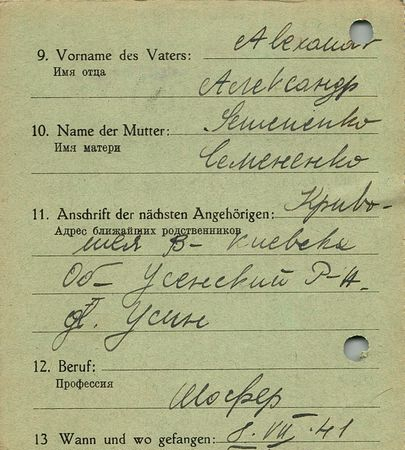 9. Vorname des Vaters:
Имя отца
Александр
10. Name der Mutter:
Имя матери
Семененко
11. Anschrift der nächsten Angehörigen: Криво-
Адрес ближайших родственников
шея В- Киевска
Об- Усенский Р-н.
Усин
12. Beruf:
Профессия
Шофер
13 Wann und wo gefangen: 8. VII. 41